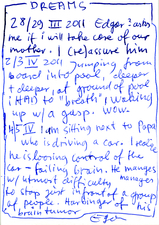 DREAMS
28/29 III 2011 Edgar asks
me if I will take care of our
mother. I (re)assure him
2/3 IV 2011 Jumping from
board into pool, deeper
+ deeper, at ground of pool
I HAD to "breath", waking
up w/ a gasp. WOW.
4/5 IV I am sitting next to Papa
who is driving a car. I realize
he is loosing control of the
car - failing brain. He manges
w/ utmost difficulty manages
to stop just infront of a group
of people. Harbinger of his
brain tumor